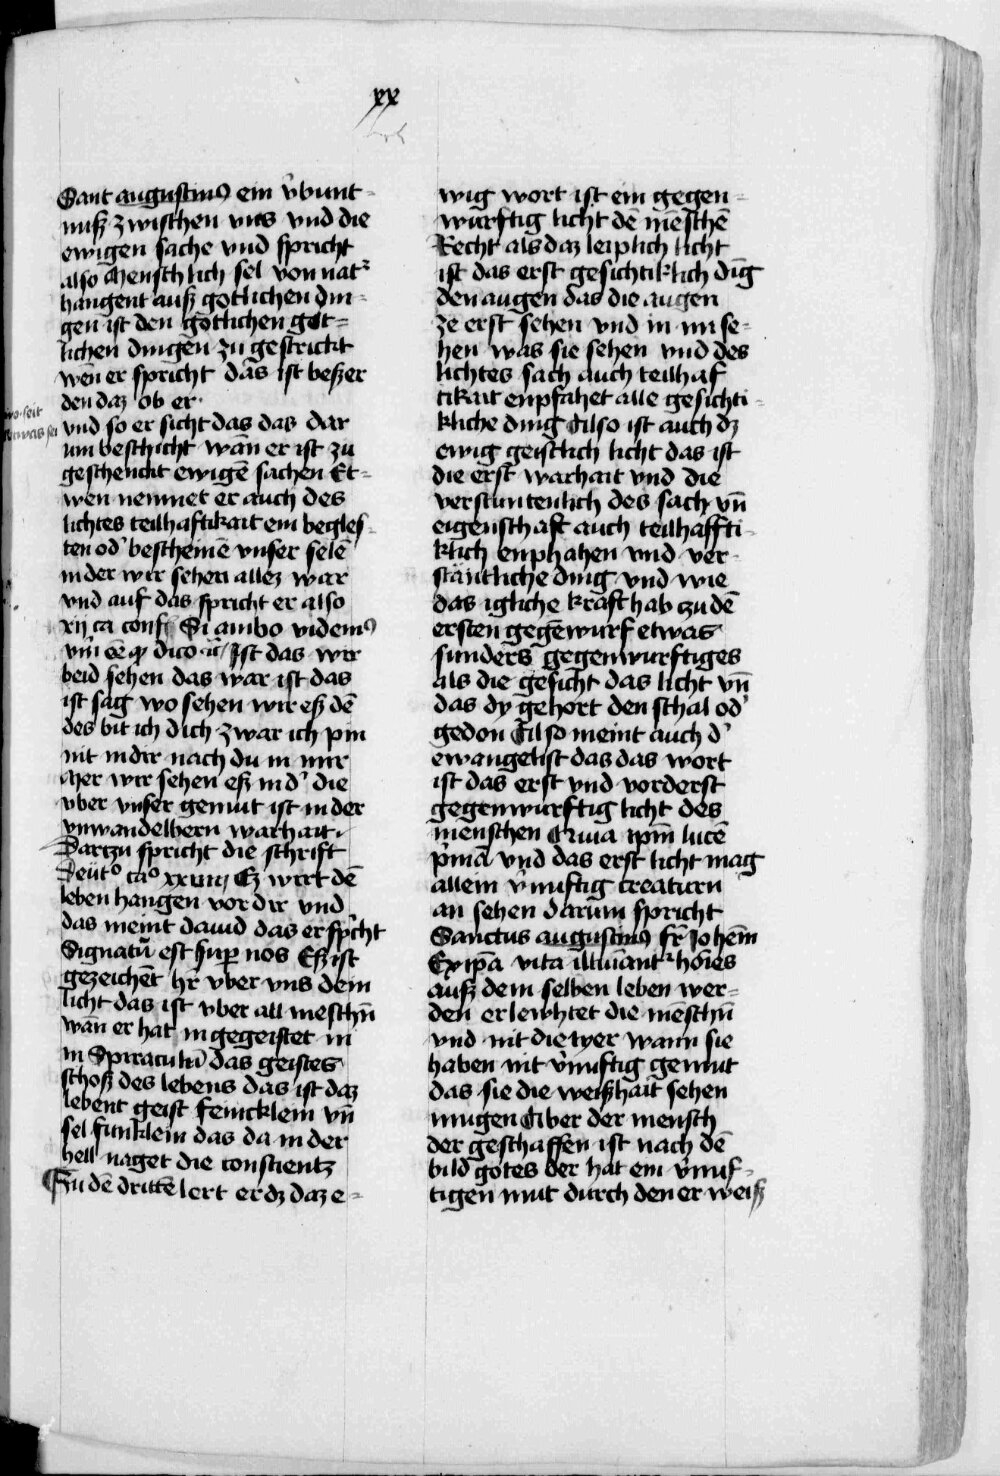 xx
Sant augustinus ein v̂bunt-
nuß zwischen vns vnd die
ewigen sache vnd spricht
also Menschlich sel von natr
hangent auß gotlichen din-
gen ist den gotlichen got-
lichen dingen zu gestrickt
wen̄ er spricht das ist beßer
den daz ob er.
vnd so er sicht das das dar
um beschicht wan̄ er ist zu
geschenckt ewigē sachen Et-
wen nennet er auch des
lichtes teilhaftikait ein begles-
ten od' bescheinē vnser selē
in der wir sehen allez war
vnd auf das spricht er also
xij ca conf Si ambo videmus
vm̄ ēē qp dico ūc Ist das wir
beid sehen das war ist das
ist sag wo sehen wir eß dē
des bit ich dich zwar ich pin
nit in dir nach du in mir
Mer wir sehen eß in d' die
vber vnser gemut ist in der
vnwandelbern warhait.
Dartzu spricht die schrift
Deüto cao xxiiij Ez wirt dē
leben hangen vor dir vnd
das meint dauid das er sp̂cht
Signatū est sup nos Eß ist
gezeichēt hr̄ vber vns dein
licht das ist vber all meschn̄
wan̄ er hat in gegeistet in
in Spiraculū das geistes
schoß des lebens das ist daz
lebent geist feincklein vn̄
sel funklein das da in der
hell naget die conscientz
Zu dē drittē lert er dz daz e-
wig wort ist ein gegen-
würftig licht de mēschē
Recht als daz leiplich licht
ist das erst gesichtiklich dīg
den augen das die augen
ze erst sehen vnd in im se-
hen was sie sehen vnd des
lichtes sach auch teilhaf
tikait enpfahet alle gesichti-
kliche ding Also ist auch dz
ewig geistlich licht das ist
die erst warhait vnd die
verstuntenlich des sach vn̄
eigenschaft auch teilhaffti-
klich enphahen vnd ver-
stantliche ding vnd wie
das igliche kraft hab czu dē
ersten gegēwurf etwas
sunders gegenwurftiges
als die gesicht das licht vn̄
das dy gehort den schal od'
gedon Also meint auch d'
ewangelist das das wort
ist das erst vnd vorderst
gegenwurftig licht des
menschen Quia ipm̄ lucē
p̂mā vnd das erst licht mag
allein v̂nuftig creaturn
an sehen darum spricht
Sanctus augustinus sr̄ Johēm
Ex ipā vita illuiant hōies
auß dem selben leben wer-
den erlewhtet die mēschn̄
vnd nit die tyer wann sie
haben nit v̂nuftig gemut
das sie die weißhait sehen
mugen Aber der mensch
der geschaffen ist nach dē
bild gotes der hat ein v̂nuf-
tigen mut durch den er weiß